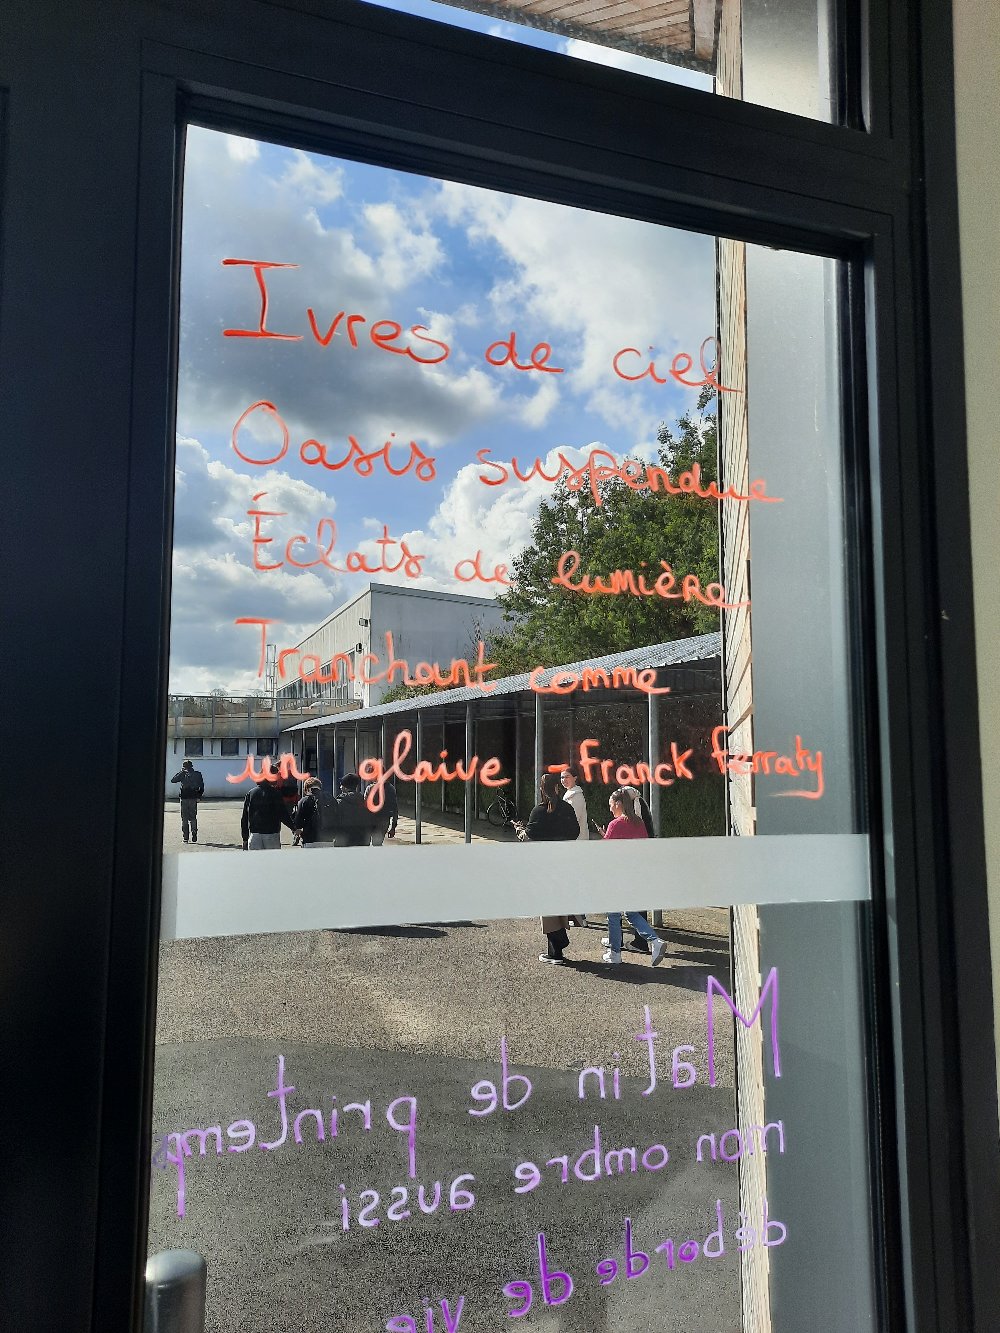 Ivres de ciel
Oasis suspendue
Éclats de lumière
Tranchant comme
un glaive - Franck Ferraty
Matin de printemp
mon ombre aussi
déborde de
vie